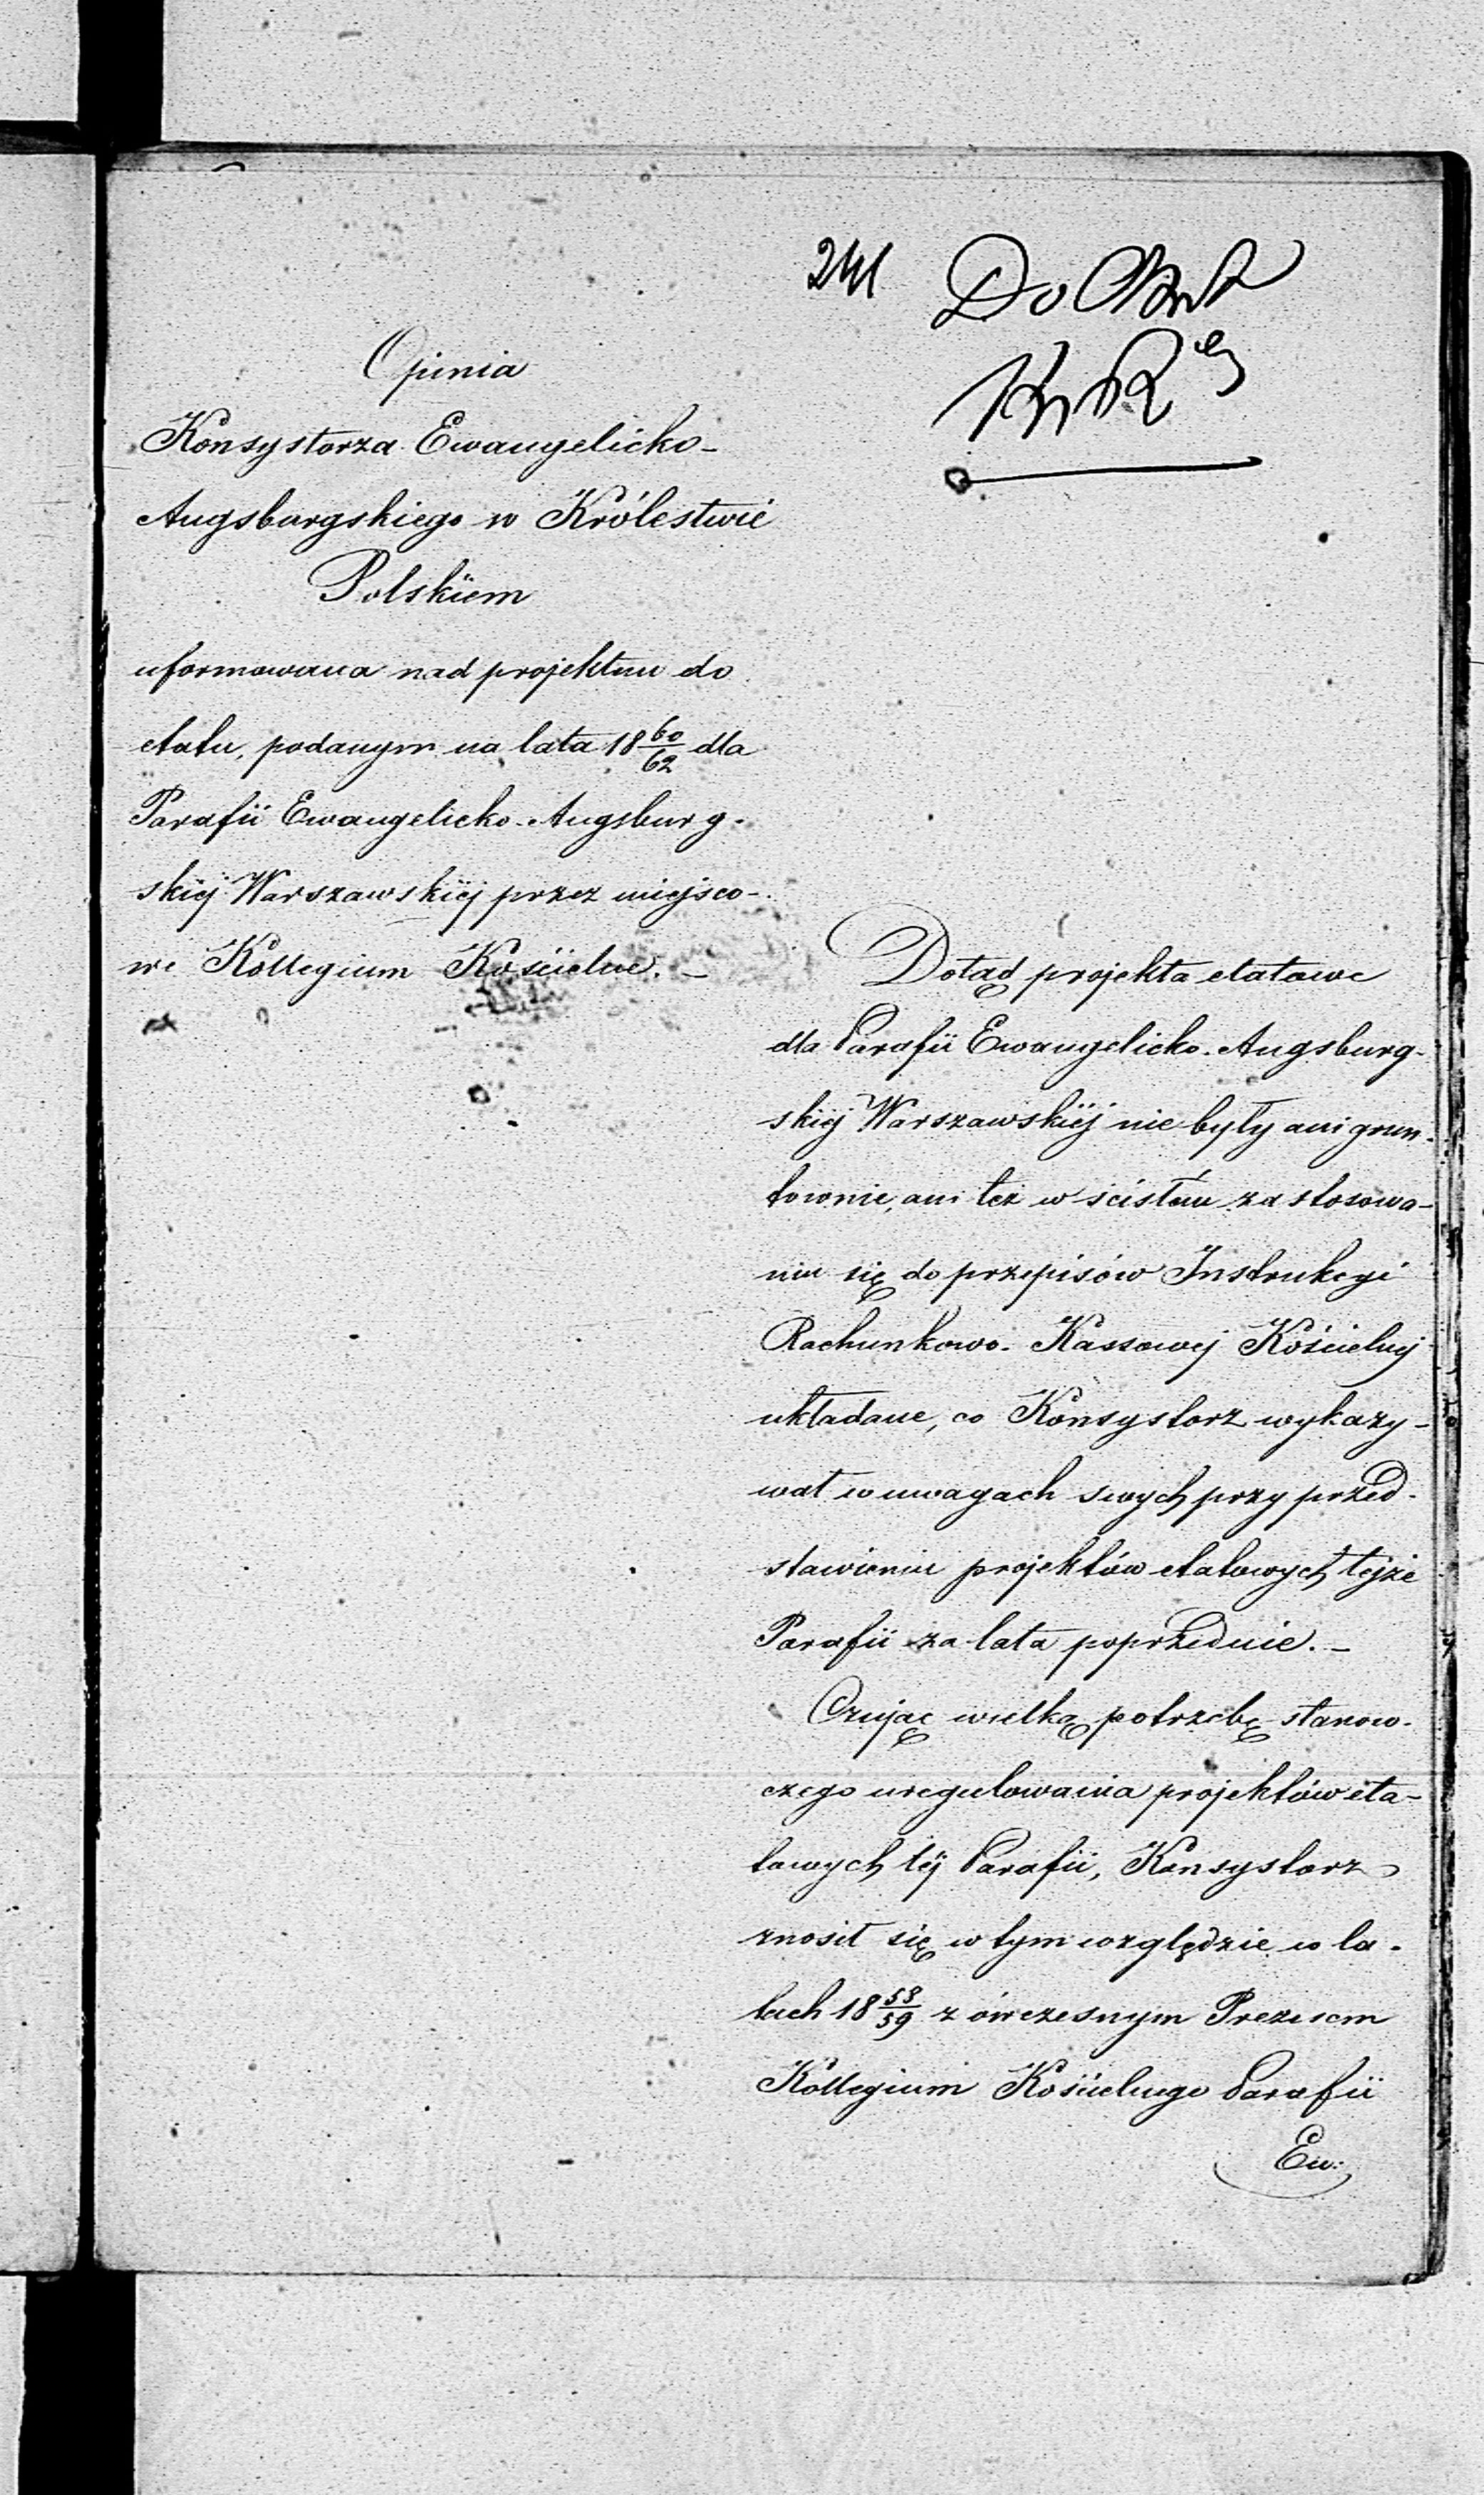 241
Do
Opinia
Konsystorza Ewangelicko-
Augsburgskiego w Królestwie
Polskiem
uformowana nad projektem do
etatu, podanym na lata 18 60/62 dla
Parafii Ewangelicko-Augsburg-
skiej Warszawskiej przez miejsco-
we Kollegium Kościelne. —
Dotąd projekta etatowe
dla Parafii Ewangelicko-Augsburg-
skiej Warszawskiej nie były ani grun-
townie, ani też w ścisłem zastosowa-
niu się do przepisów Instrukcyi
Rachunkowo-Kassowej Kościelnej
układane, co Konsystorz wykazy-
wał w uwagach swych przy przed-
stawieniu projektów etatowych tejże
Parafii za lata poprzednie. —
Czując wielką potrzebę stanow-
czego uregulowania projektów eta-
towych tej Parafii, Konsystorz
znosił się w tym względzie w la-
tach 18 58/59 z ówczesnym Prezesem
Kollegium Kościelnego Parafii
Ew: